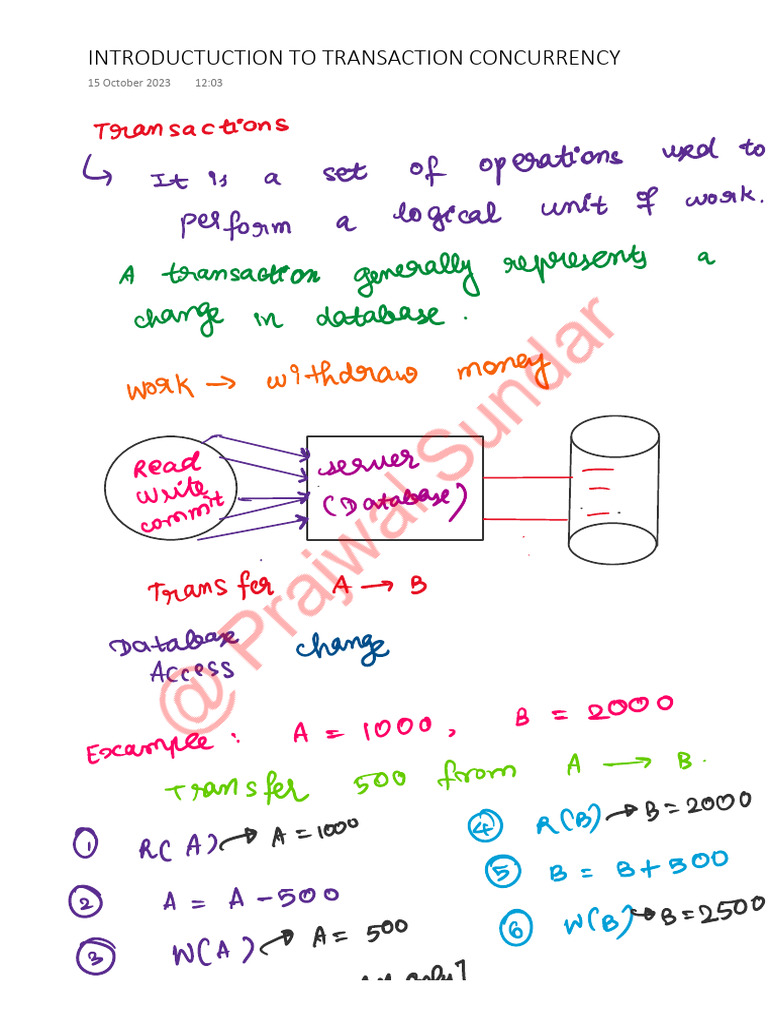 INTRODUCTUCTION TO TRANSACTION CONCURRENCY
15 October 2023 12:03
Transactions
↳ It is a set of operations used to
perform a logical unit of work.
A transaction generally represents a
change in database.
work → withdraw money
Read
write
commit
server
(Database)
Transfer A → B
Database change
Access
Example: A = 1000, B = 2000
Transfer 500 from A → B.
① R(A) → A = 1000
② A = A - 500
③ W(A) → A = 500
④ R(B) → B = 2000
⑤ B = B + 500
⑥ W(B) → B = 2500
@ Prajwal Sundar